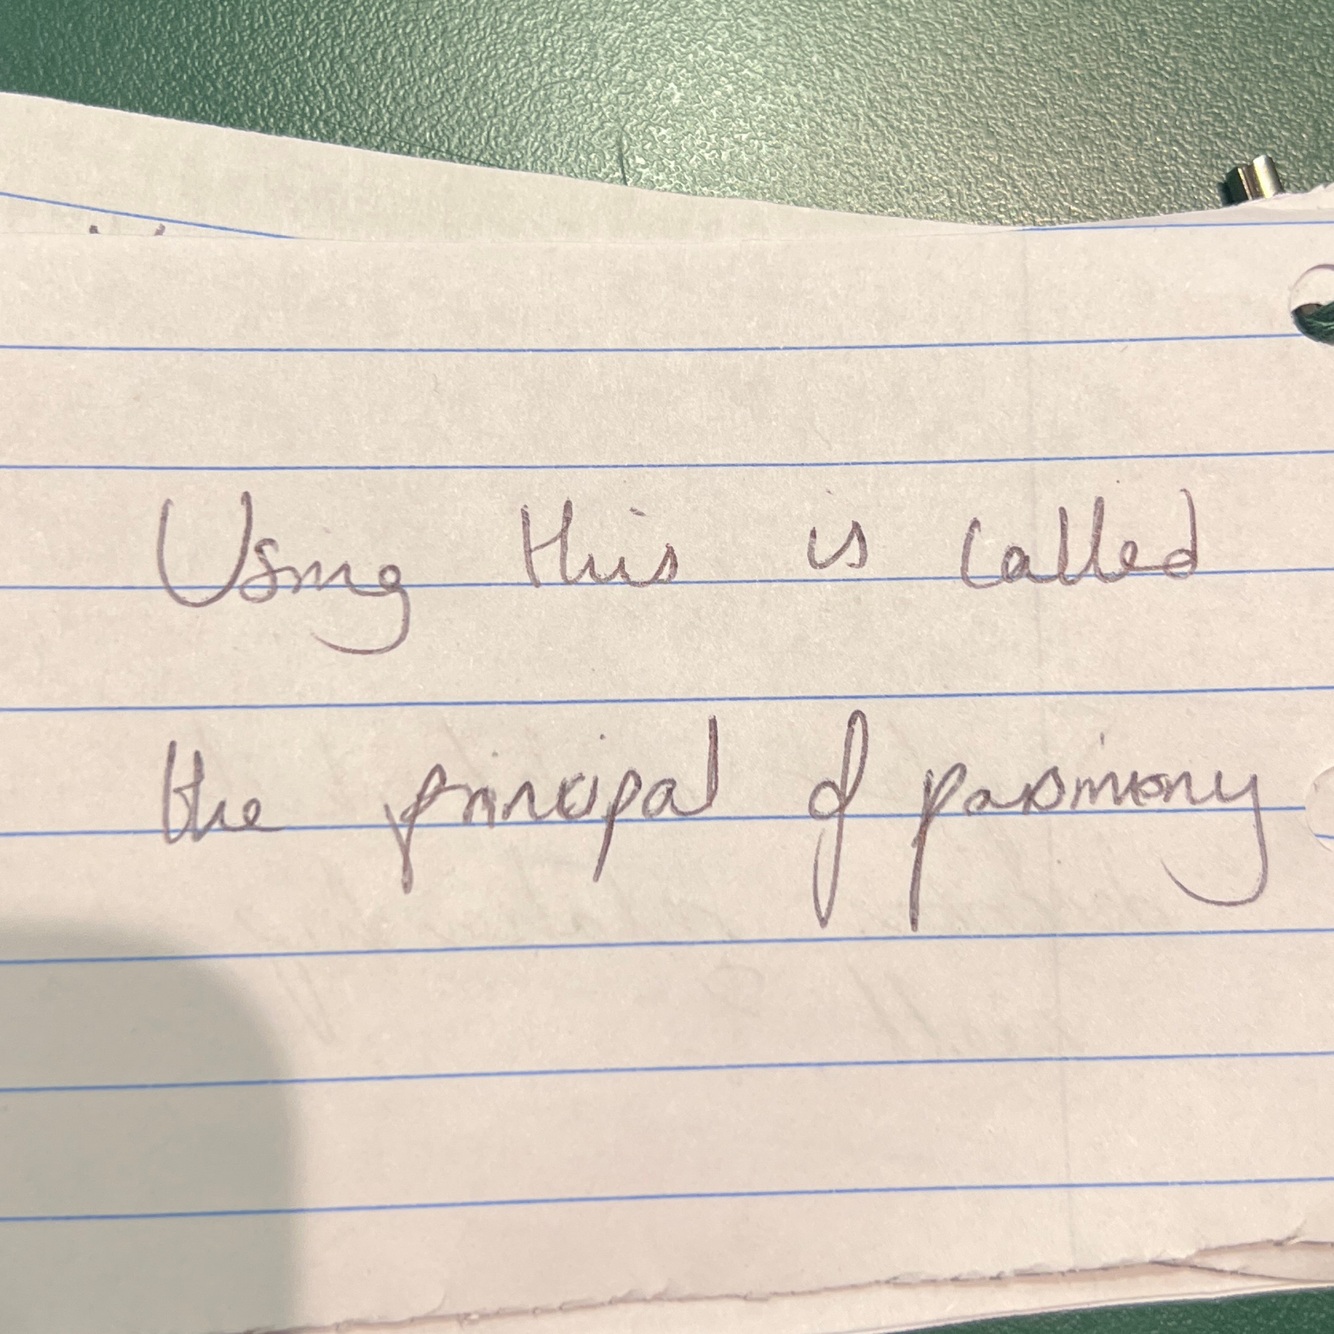 Using this is called
the principal of parsimony